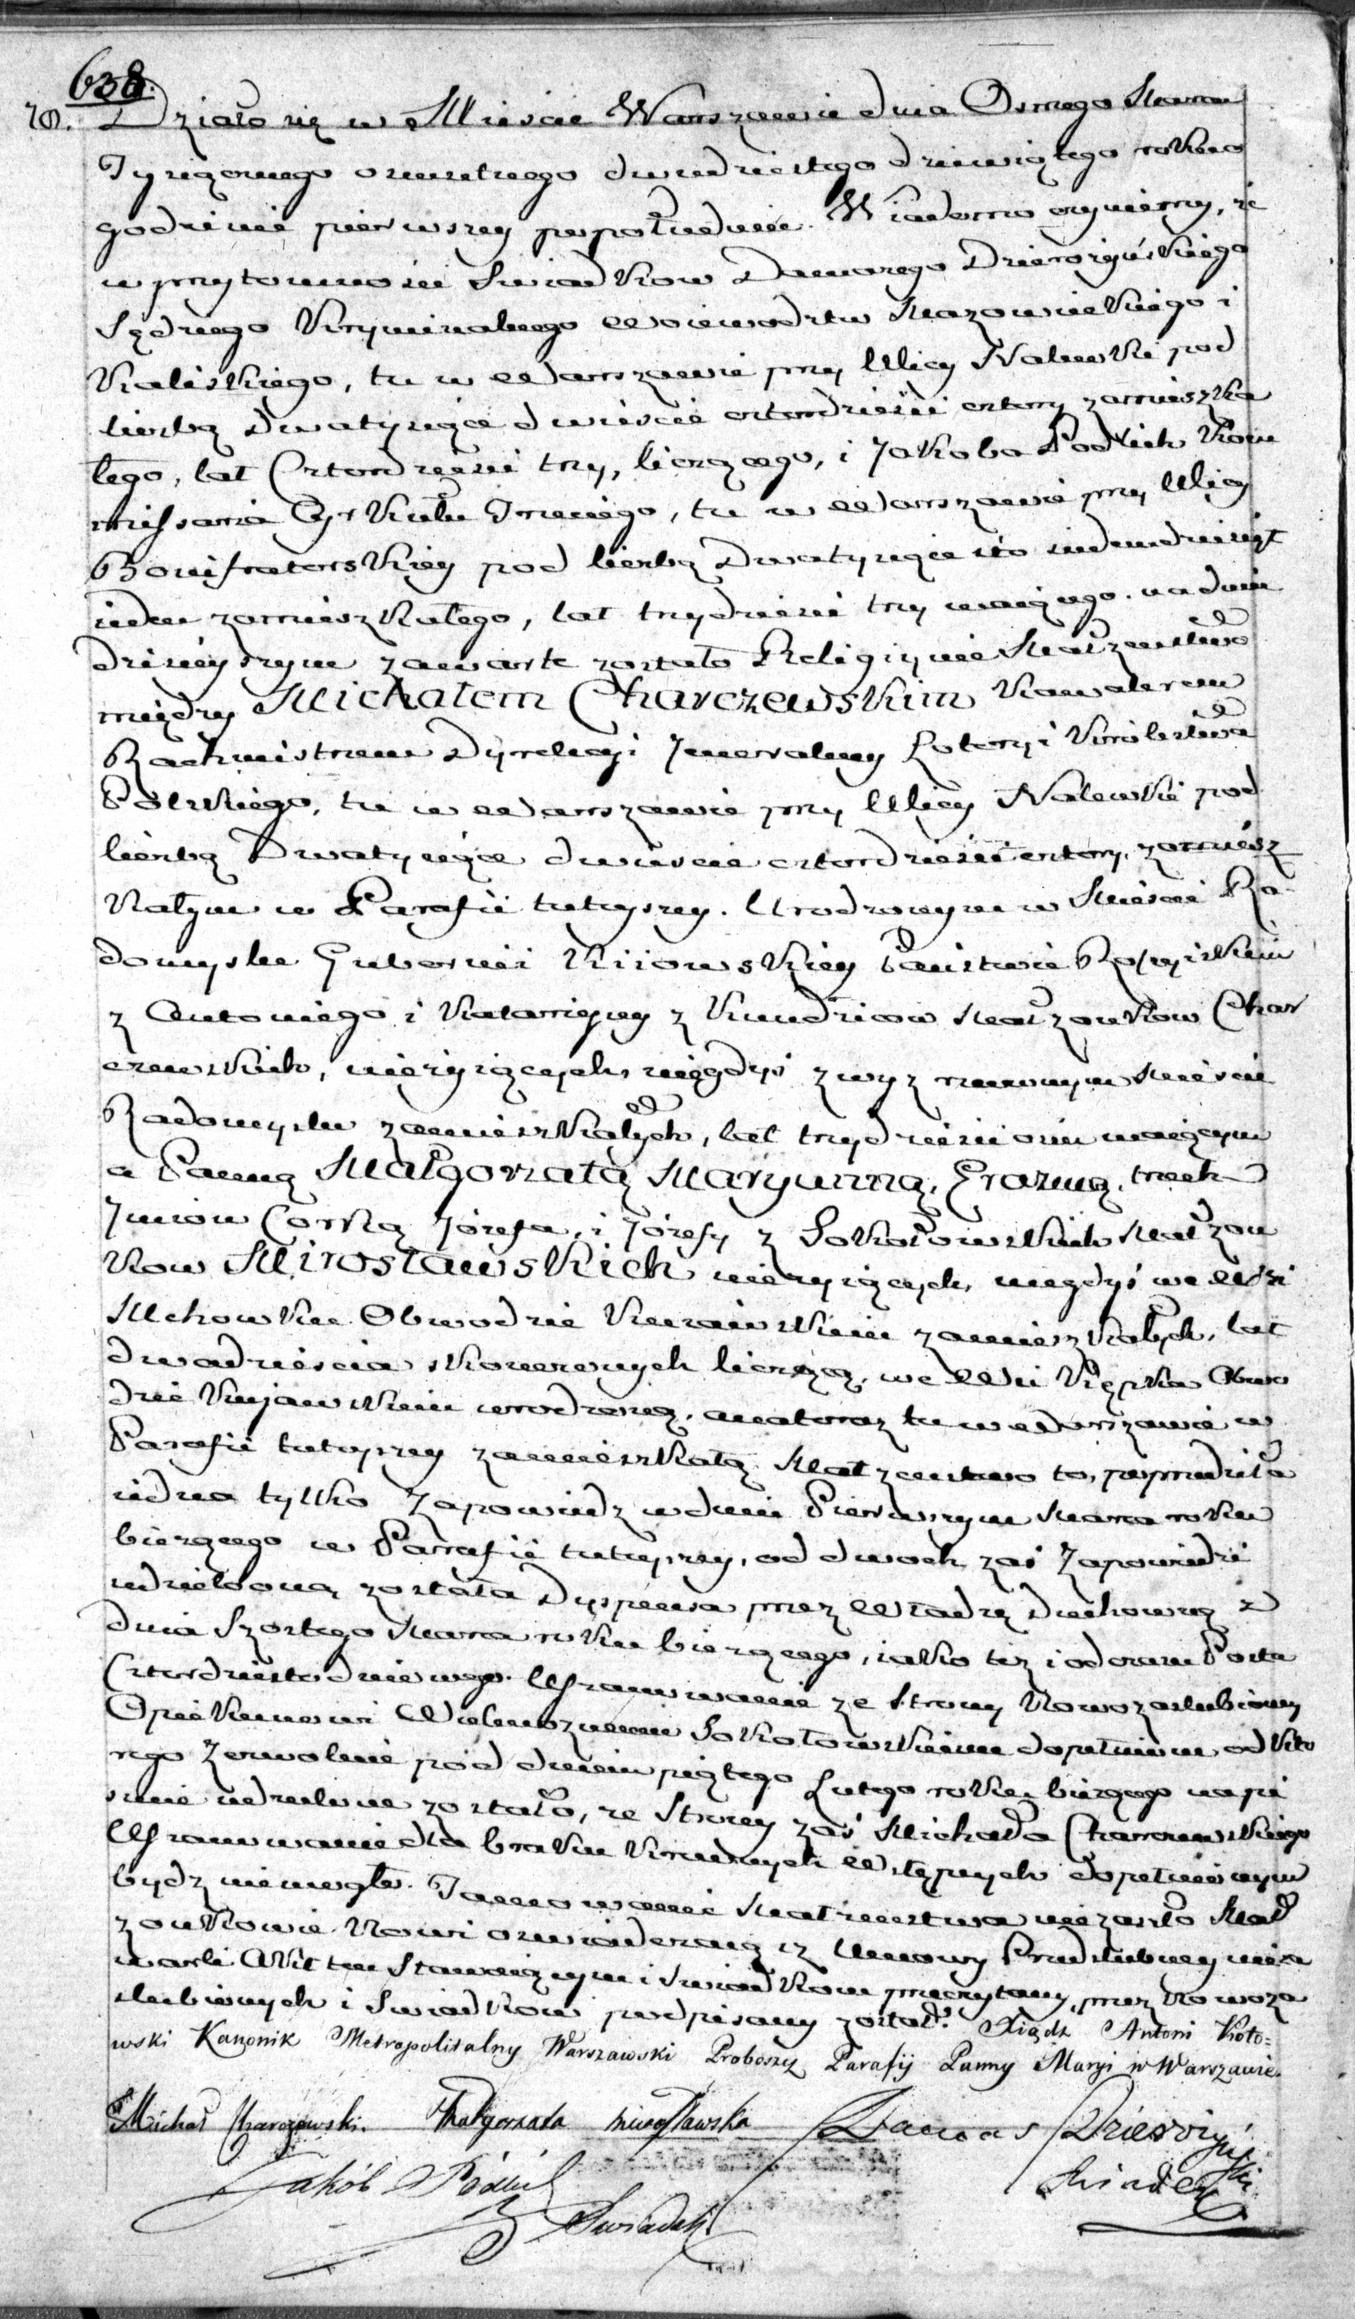 638.
78. Działo się w Mieście Warszawie dnia Osmego Marca
Tysiącznego osmsetnego dwudziestego dziewiątego roku o
godzinie pierwszey popołudniu. Wiadomo czyniemy, że
w przytomności Swiadkow Damazego Dzierożyńskiego
Sędziego Kryminalnego Woiewodztw Mazowieckiego i
Kaliskiego, tu w Warszawie przy Ulicy Nalewki pod
liczbą Dwatysiące dwieście czterdzieści cztery zamieszka
łego, lat Czterdzieści trzy, liczącego, i Jakoba Kom
missarza Cyrkułu Trzeciego, tu w Warszawie przy Ulicy
Bonifraterskiey pod liczbą Dwatysiące sto siedemdziesiąt
ieden zamieszkałego, lat trzydzieści trzy maiącego. na dniu
dzisieyszym zawarte zostało Religiynie Małżeństwo
między Michałem Charczewskim Kawalerem
Rachmistrzem Dyrekcyi Jeneralney Loteryi Krolestwa
Polskiego, tu w Warszawie przy Ulicy Nalewki pod
liczbą Dwatysiące dwieście czterdzieści cztery, zamiesz
kałym w Parafii tuteyszey. Urodzonym w Mieście Ra
domyslu Gubernii Kiiowskiey Państwie Rossyiskim
z Antoniego i Katarzyny z Małżonkow Char
czewskich, nieżyiących, niegdyś z wyż rzeczonym Mieście
Radomyslu zamieszkałych, lat trzydzieści ośm maiącym
a Panną Małgorzatą Maryanną, Erazmą, trzech
Imion Corką Józefa, i Józefy z Sokołowskich Małżon
kow Mirosławskich nieżyiących, niegdyś we Wsi
Obwodzie Kuiawskim zamieszkałych, lat
dwadzieścia skończonych liczącą, we Wsi Obwo
dzie Kujawskim urodzoną, a teraz tu w Warszawie w
Parafii tuteyszey zamieszkałą. Małżeństwo to, poprzedziła
iedna tylko Zapowiedz w dniu Pierwszym Marca roku
bieżącego w Parafii tuteyszey, od dwoch zaś Zapowiedzi
udzieloną została Dyspensa przez Władzę Duchowną z
dnia Szostego Marca roku bieżącego, iako też i od czasu Postu
Czterdziestodniowego. Uszanowanie ze Strony Nowozaslubioney
Opiekunowi Sokołowskiemu dopełnione od kto
rego Zezwolenie pod dniem piątego Lutego roku bieżącego na pi
smie udzielone zostało, ze Strony zaś Michała Charczewskiego
Uszanowanie dla braku Krewnych Wstępnych dopełnionym
bydz niemogło. Tamowanie Małżeństwa nie zaszło Mał
żonkowie Nowi oswiadczaią iz Umowy Przedslubney nieza
warli Akt ten Stawaiącym i Swiadkom przeczytany, przez Nowoza
slubionych i Swiadkow podpisany został. Xiądz Antoni Koto=
wski Kanonik Metropolitalny Warszawski Proboszcz Parafij Panny Maryi w Warszawie.
Michał Charczewski. Małgorzata Mirosławska Damas Dzierożyński
Swiadek
Jakób
Swiadek